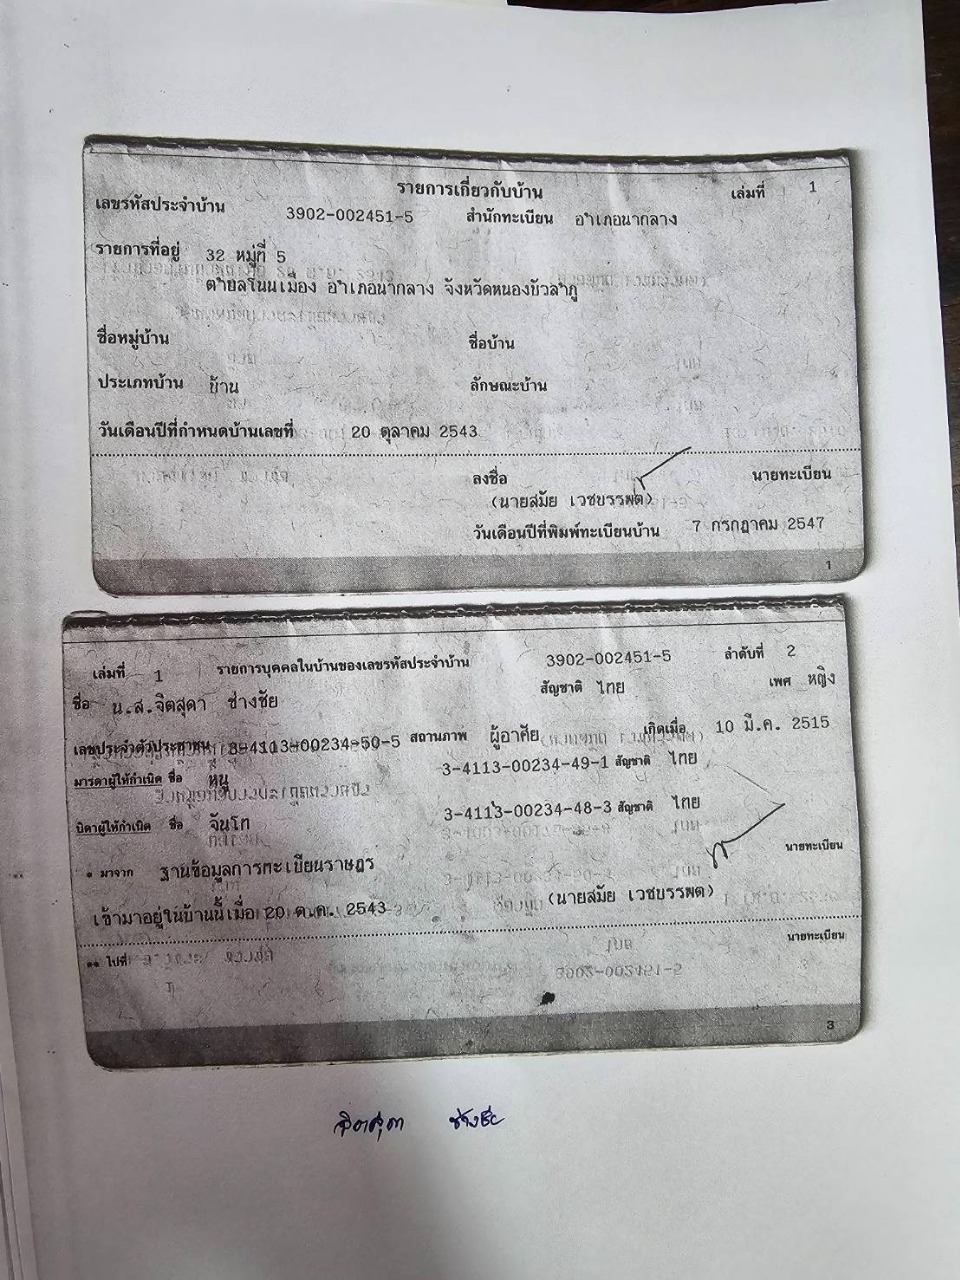 รายการเกี่ยวกับบ้าน เล่มที่ 1
เลขรหัสประจำบ้าน 3902-002451-5 สำนักทะเบียน อำเภอนากลาง
รายการที่อยู่ 32 หมู่ที่ 5
ตำบลโนนเมือง อำเภอนากลาง จังหวัดหนองบัวลำภู
ชื่อหมู่บ้าน ชื่อบ้าน
ประเภทบ้าน บ้าน ลักษณะบ้าน
วันเดือนปีที่กำหนดบ้านเลขที่ 20 ตุลาคม 2543
ลงชื่อ นายทะเบียน
(นายสมัย เวชบรรพต)
วันเดือนปีที่พิมพ์ทะเบียนบ้าน 7 กรกฎาคม 2547
1
เล่มที่ 1 รายการบุคคลในบ้านของเลขรหัสประจำบ้าน 3902-002451-5 ลำดับที่ 2
ชื่อ น.ส.จิตสุดา ช่างชัย สัญชาติ ไทย เพศ หญิง
เลขประจำตัวประชาชน 3-4113-00234-50-5 สถานภาพ ผู้อาศัย เกิดเมื่อ 10 มี.ค. 2515
มารดาผู้ให้กำเนิด ชื่อ หนู 3-4113-00234-49-1 สัญชาติ ไทย
บิดาผู้ให้กำเนิด ชื่อ จันโท 3-4113-00234-48-3 สัญชาติ ไทย
* มาจาก ฐานข้อมูลการทะเบียนราษฎร นายทะเบียน
เข้ามาอยู่ในบ้านนี้เมื่อ 20 ต.ค. 2543 (นายสมัย เวชบรรพต)
** ไปที่ นายทะเบียน
3
จิตสุดา ช่างชัย